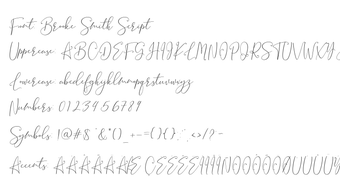 Font Brooke Smith Script
Uppercase ABCDEFGHIJKLMNOPQRSTUVWXYZ
Lowercase abcdefghijklmnopqrstuvwxyz
Numbers 0123456789
Symbols !@#$ &*()_+-={}{}:;,<>/?~
Accents ÀÁÂÃÄÅÆ ÇÈÉÊËÌÍÎÏÑÒÓÔÕÖØÙÚÛÜ